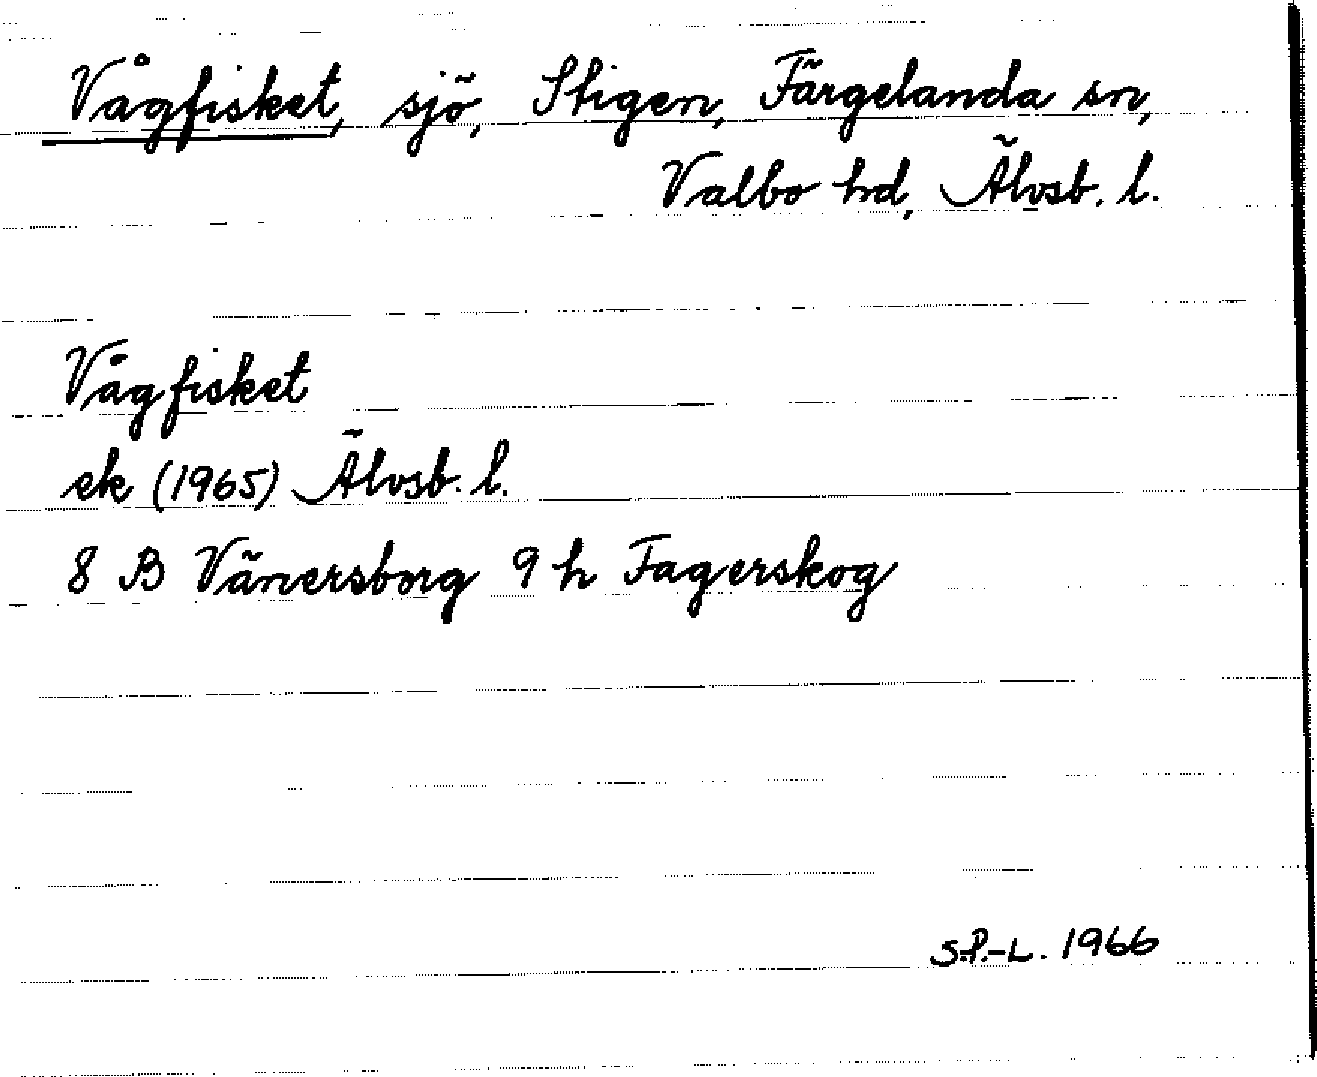 Vågfisket, sjö, Stigen, Färgelanda sn,
Valbo hd, Älvsb. l.
Vågfisket
ek (1965) Älvsb. l.
8 B Vänersborg 9 h Fagerskog
S.P.-L. 1966